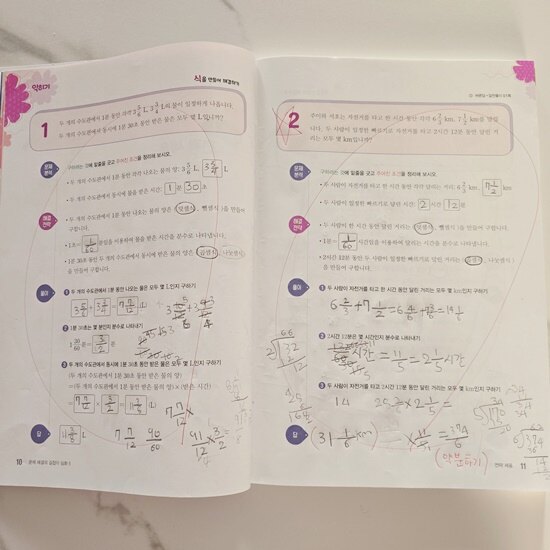 익히기
식을 만들어 해결하기
1
두 개의 수도관에서 1분 동안 각각 3 5/6 L, 3 3/4 L의 물이 일정하게 나옵니다.
두 개의 수도관에서 동시에 1분 30초 동안 받은 물은 모두 몇 L입니까?
문제 분석
구하려는 것에 밑줄을 긋고 주어진 조건을 정리해 보시오.
• 두 개의 수도관에서 1분 동안 각각 받은 물의 양: 3 5/6 L, 3 3/4 L
• 두 개의 수도관에서 동시에 물을 받은 시간: 1분 30초
해결 전략
• 두 개의 수도관에서 1분 동안 나오는 물의 양은 (덧셈식, 뺄셈식)을 만들어
구합니다.
• 1초= 1/60 분임을 이용하여 물을 받은 시간을 분수로 나타냅니다.
• 1분 30초 동안 두 개의 수도관에서 받은 물의 양은 (곱셈식, 나눗셈식)을 만들
어 구합니다.
풀이
1 두 개의 수도관에서 1분 동안 나오는 물은 모두 몇 L인지 구하기
3 5/6 + 3 3/4 = 7 7/12 (L)
2 1분 30초는 몇 분인지 분수로 나타내기
1 30/60 분= 3/2 분
3 두 개의 수도관에서 동시에 1분 30초 동안 받은 물은 모두 몇 L인지 구하기
(두 개의 수도관에서 1분 30초 동안 받은 물의 양)
=(두 개의 수도관에서 1분 동안 나오는 물의 양)×(받은 시간)
7 7/12 × 3/2 = 11 3/8 (L)
답
11 3/8 L
7 7/12 90/60 91/12 × 3/2
10
문제 해결의 길잡이 심화
바른답•알찬풀이 01쪽
2
주아와 서호는 자전거를 타고 한 시간 동안 각각 6 2/3 km, 7 1/2 km를 달렸습
니다. 두 사람이 일정한 빠르기로 자전거를 타고 2시간 12분 동안 달린 거
리는 모두 몇 km입니까?
문제 분석
구하려는 것에 밑줄을 긋고 주어진 조건을 정리해 보시오.
• 두 사람이 자전거를 타고 한 시간 동안 각각 달리는 거리: 6 2/3 km, 7 1/2 km
• 두 사람이 일정한 빠르기로 달린 시간: 2시간 12분
해결 전략
• 두 사람이 한 시간 동안 달린 거리는 (덧셈식, 뺄셈식)을 만들어 구합니다.
• 1분= 1/60 시간임을 이용하여 달리는 시간을 분수로 나타냅니다.
• 2시간 12분 동안 두 사람이 일정한 빠르기로 달린 거리는 (곱셈식, 나눗셈식)
을 만들어 구합니다.
풀이
1 두 사람이 자전거를 타고 한 시간 동안 달린 거리는 모두 몇 km인지 구하기
6 2/3 + 7 1/2 = 6 4/6 + 7 3/6 = 14 1/6
2 2시간 12분은 몇 시간인지 분수로 나타내기
시간 = 11/5 = 2 1/5 시간
3 두 사람이 자전거를 타고 2시간 12분 동안 달린 거리는 모두 몇 km인지 구하기
답
(31 1/6 km)
(약분하기)
전략 세움
11